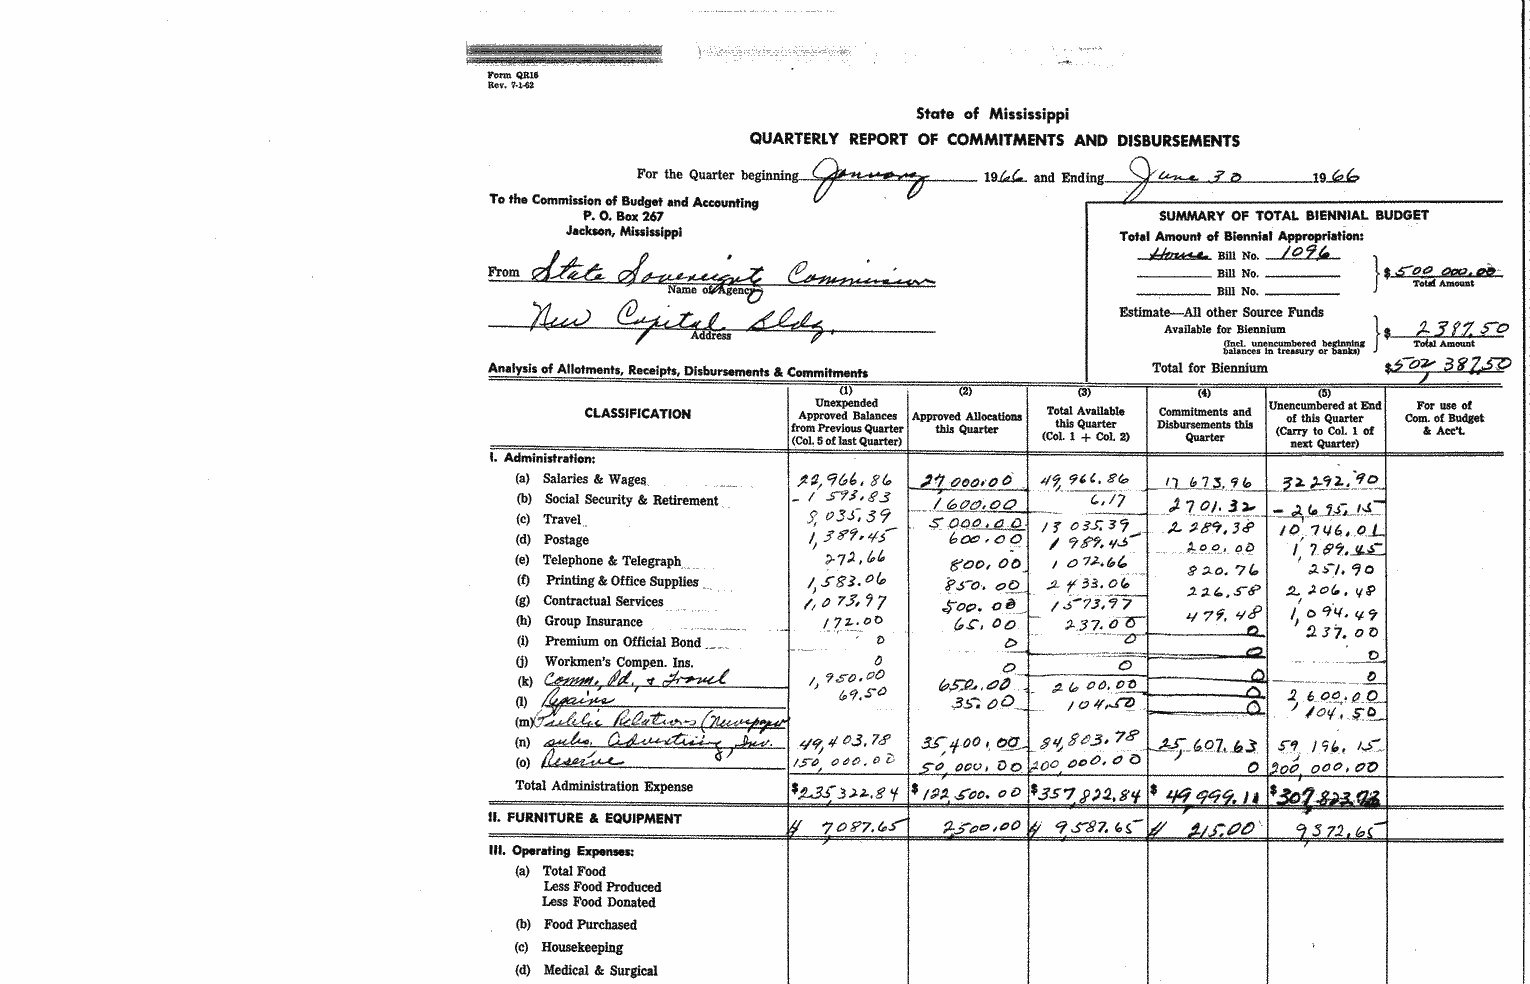 Form QR16
Rev. 7-1-62
State of Mississippi
QUARTERLY REPORT OF COMMITMENTS AND DISBURSEMENTS
For the Quarter beginning January 1966 and Ending June 30 1966
To the Commission of Budget and Accounting
P. O. Box 267
Jackson, Mississippi
From State Sovereignty Commission
Name of Agency
New Capital Bldg.
Address
SUMMARY OF TOTAL BIENNIAL BUDGET
Total Amount of Biennial Appropriation:
House Bill No. 1096
Bill No.
Bill No.
$500 000.00
Total Amount
Estimate—All other Source Funds
Available for Biennium
(Incl. unencumbered beginning
balances in treasury or banks)
$ 2387.50
Total Amount
Total for Biennium $502,387.50
Analysis of Allotments, Receipts, Disbursements & Commitments
CLASSIFICATION
(1) Unexpended Approved Balances from Previous Quarter (Col. 5 of last Quarter)
(2) Approved Allocations this Quarter
(3) Total Available this Quarter (Col. 1 + Col. 2)
(4) Commitments and Disbursements this Quarter
(5) Unencumbered at End of this Quarter (Carry to Col. 1 of next Quarter)
For use of Com. of Budget & Acc't.
I. Administration:
(a) Salaries & Wages 22,966.86 27,000.00 49,966.86 17 673.96 32 292.90
(b) Social Security & Retirement -1 593.83 1600.00 6.17 2701.32 -2695.15
(c) Travel 8,035.39 5,000.00 13 035.39 2 289.38 10,746.01
(d) Postage 1,389.45 600.00 1 989.45 200.00 1,789.45
(e) Telephone & Telegraph 272.66 800.00 1 072.66 820.76 251.90
(f) Printing & Office Supplies 1,583.06 850.00 2 433.06 226.58 2,206.48
(g) Contractual Services 1,073.97 500.00 1573.97 479.48 1,094.49
(h) Group Insurance 172.00 65.00 237.00 0 237.00
(i) Premium on Official Bond 0 0 0 0 0
(j) Workmen's Compen. Ins. 0 0 0 0 0
(k) Comm. Pd., & Travel 1,950.00 650.00 2600.00 0 2600.00
(l) Repairs 69.50 35.00 104.50 0 104.50
(m) Public Relations (Newspaper
(n) subs. Advertising, Inv. 49,403.78 35,400.00 84,803.78 25,607.63 59 196.15
(o) Reserve 150,000.00 50,000.00 200,000.00 0 200,000.00
Total Administration Expense $235,322.84 $122,500.00 $357,822.84 $ 49,999.11 $307,823.73
II. FURNITURE & EQUIPMENT $ 7,087.65 2500.00 $ 9,587.65 $ 215.00 9,372.65
III. Operating Expenses:
(a) Total Food
Less Food Produced
Less Food Donated
(b) Food Purchased
(c) Housekeeping
(d) Medical & Surgical